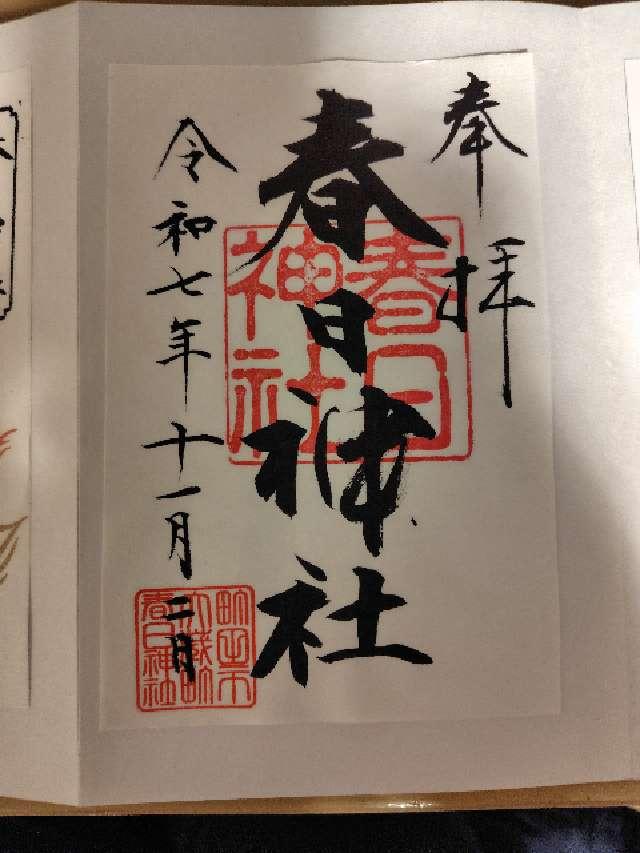 奉拝
春日神社
春日神社
令和七年十一月二日
春日神社